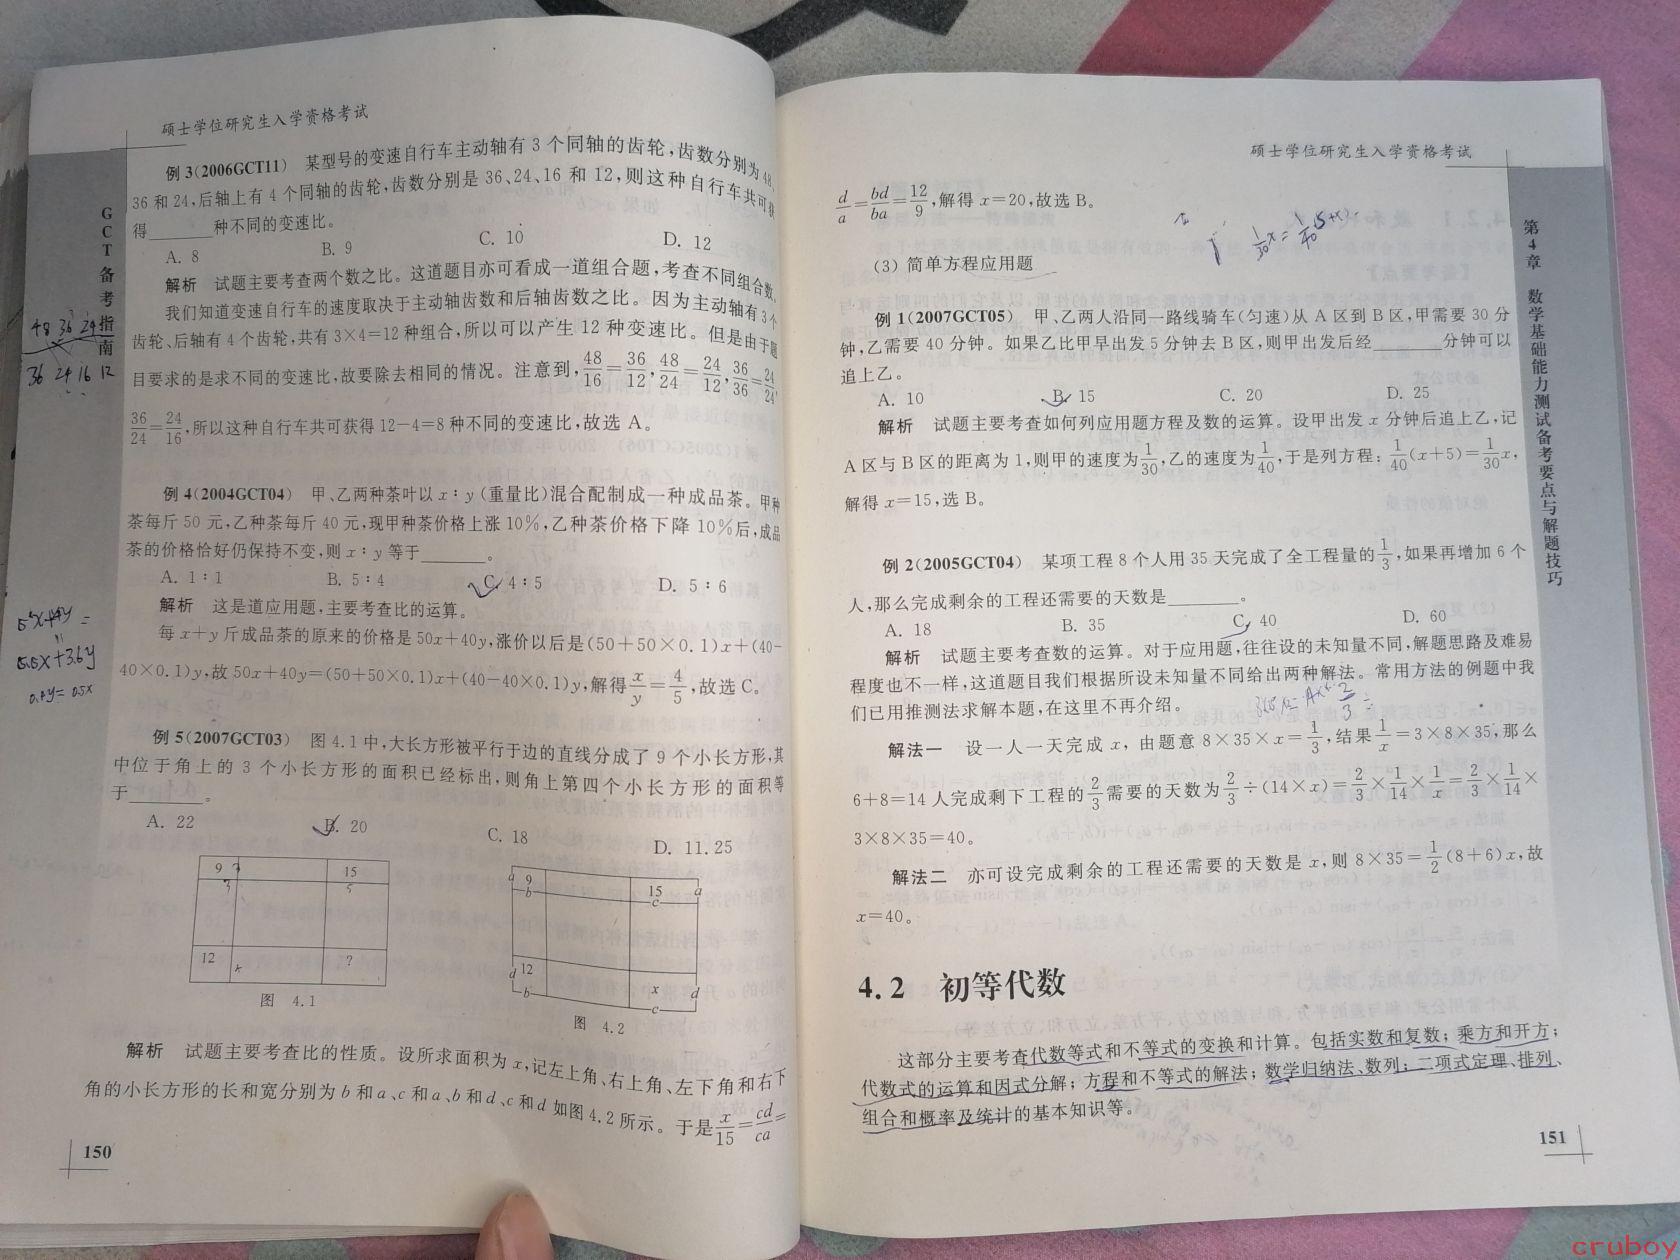 硕士学位研究生入学资格考试
GCT备考指南
例 3(2006GCT11) 某型号的变速自行车主动轴有 3 个同轴的齿轮,齿数分别为 48、
36 和 24,后轴上有 4 个同轴的齿轮,齿数分别是 36、24、16 和 12,则这种自行车共可获
得______种不同的变速比。
A. 8 B. 9 C. 10 D. 12
解析 试题主要考查两个数之比。这道题目亦可看成一道组合题,考查不同组合数。
我们知道变速自行车的速度取决于主动轴齿数和后轴齿数之比。因为主动轴有 3 个
齿轮、后轴有 4 个齿轮,共有 3×4=12 种组合,所以可以产生 12 种变速比。但是由于题
目要求的是求不同的变速比,故要除去相同的情况。注意到,48/16=36/12,48/24=24/12,36/36=24/24,
36/24=24/16,所以这种自行车共可获得 12-4=8 种不同的变速比,故选 A。
48 36 24
36 24 16 12
例 4(2004GCT04) 甲、乙两种茶叶以 x∶y(重量比)混合配制成一种成品茶。甲种
茶每斤 50 元,乙种茶每斤 40 元,现甲种茶价格上涨 10%,乙种茶价格下降 10%后,成品
茶的价格恰好仍保持不变,则 x∶y 等于______。
A. 1∶1 B. 5∶4 C. 4∶5 D. 5∶6
解析 这是道应用题,主要考查比的运算。
每 x+y 斤成品茶的原来的价格是 50x+40y,涨价以后是(50+50×0.1)x+(40-
40×0.1)y,故 50x+40y=(50+50×0.1)x+(40-40×0.1)y,解得x/y=4/5,故选 C。
5x+4y=
5.5x+3.6y
0.4y=0.5x
例 5(2007GCT03) 图 4.1 中,大长方形被平行于边的直线分成了 9 个小长方形,其
中位于角上的 3 个小长方形的面积已经标出,则角上第四个小长方形的面积等
于______。
A. 22 B. 20 C. 18 D. 11.25
9 15
12 ?
图 4.1
a 9 15 a
b c
d 12 x d
b c
图 4.2
解析 试题主要考查比的性质。设所求面积为 x,记左上角、右上角、左下角和右下
角的小长方形的长和宽分别为 b 和 a、c 和 a、b 和 d、c 和 d 如图 4.2 所示。于是x/15=cd/ca=
150
硕士学位研究生入学资格考试
第4章 数学基础能力测试备考要点与解题技巧
d/a=bd/ba=12/9,解得 x=20,故选 B。
1/30 x=1/40(5+x)
(3) 简单方程应用题
例 1(2007GCT05) 甲、乙两人沿同一路线骑车(匀速)从 A 区到 B 区,甲需要 30 分
钟,乙需要 40 分钟。如果乙比甲早出发 5 分钟去 B 区,则甲出发后经______分钟可以
追上乙。
A. 10 B. 15 C. 20 D. 25
解析 试题主要考查如何列应用题方程及数的运算。设甲出发 x 分钟后追上乙,记
A 区与 B 区的距离为 1,则甲的速度为1/30,乙的速度为1/40,于是列方程:1/40(x+5)=1/30x,
解得 x=15,选 B。
例 2(2005GCT04) 某项工程 8 个人用 35 天完成了全工程量的1/3,如果再增加 6 个
人,那么完成剩余的工程还需要的天数是______。
A. 18 B. 35 C. 40 D. 60
解析 试题主要考查数的运算。对于应用题,往往设的未知量不同,解题思路及难易
程度也不一样,这道题目我们根据所设未知量不同给出两种解法。常用方法的例题中我
们已用推测法求解本题,在这里不再介绍。
解法一 设一人一天完成 x, 由题意 8×35×x=1/3,结果1/x=3×8×35,那么
6+8=14 人完成剩下工程的2/3需要的天数为2/3÷(14×x)=2/3×1/14×1/x=2/3×1/14×
3×8×35=40。
解法二 亦可设完成剩余的工程还需要的天数是 x,则 8×35=1/2(8+6)x,故
x=40。
4.2 初等代数
这部分主要考查代数等式和不等式的变换和计算。包括实数和复数;乘方和开方;
代数式的运算和因式分解;方程和不等式的解法;数学归纳法、数列;二项式定理、排列、
组合和概率及统计的基本知识等。
151
cruboy